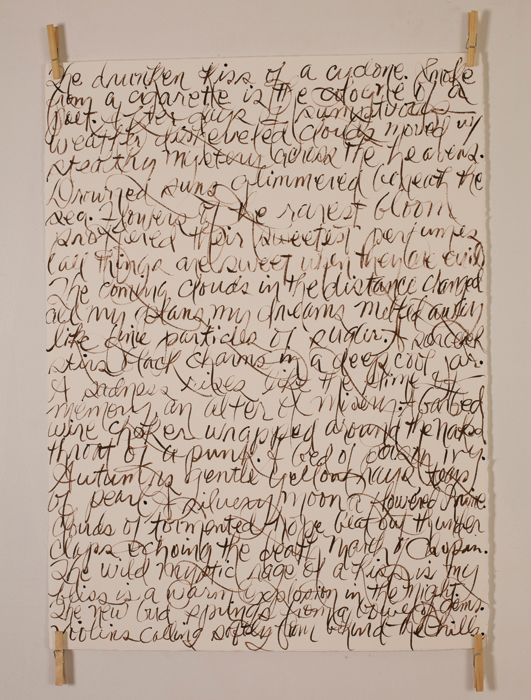 The drunken kiss of a cyclone. Smoke
from a cigarette is the odour of a
poet. After dark
wealthy disheveled clouds moved in
stealthy mystery across the heavens.
Drowned suns glimmered beneath the
sea. Flowers of the rarest bloom
proffered their sweetest perfumes
(all things are sweet when they are evil
The coming clouds in the distance changed
all my plans my dreams melted away
like fine particles of sugar. A sorcerer
stirs black charms in a deep cool jar.
A sadness rises like the slime of
memory, an altar of misery. A barbed
wire choker wrapped around the naked
throat of a punk. A bed of
Autumns gentle yellow rays
of pearl. A silvery moon a flowered
clouds of tormented hope beat out thunder
claps echoing the death march of Chopin.
The wild mystic rage of a kiss is my
bliss is a warm explosion in the night.
The new bud springs
violins calling softly from behind the hills.